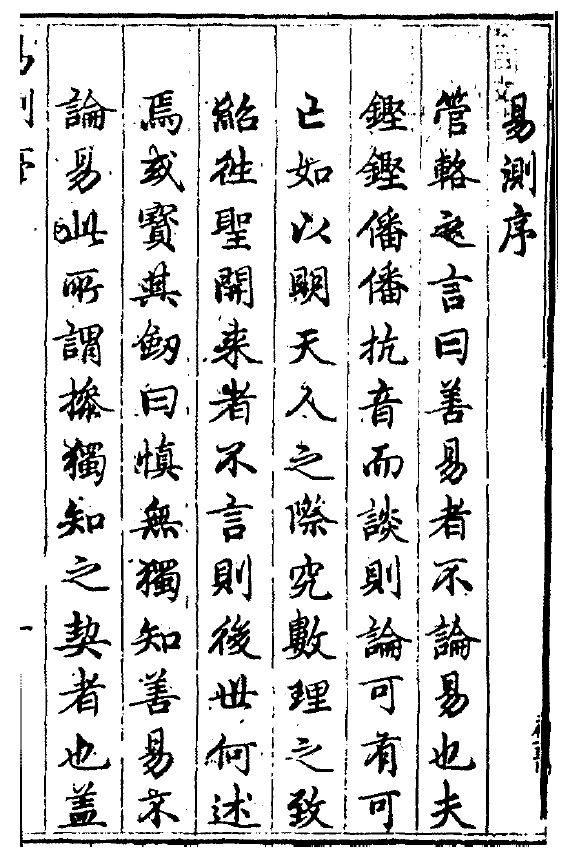 易測序
管輅之言曰善易者不論易也夫
鏗鏗僠僠抗音而談則論可有可
已如以明天人之際究數理之致
紹徃聖開来者不言則後世何述
焉或寶其釼曰慎無獨知善易不
論易此所謂操獨知之契者也蓋